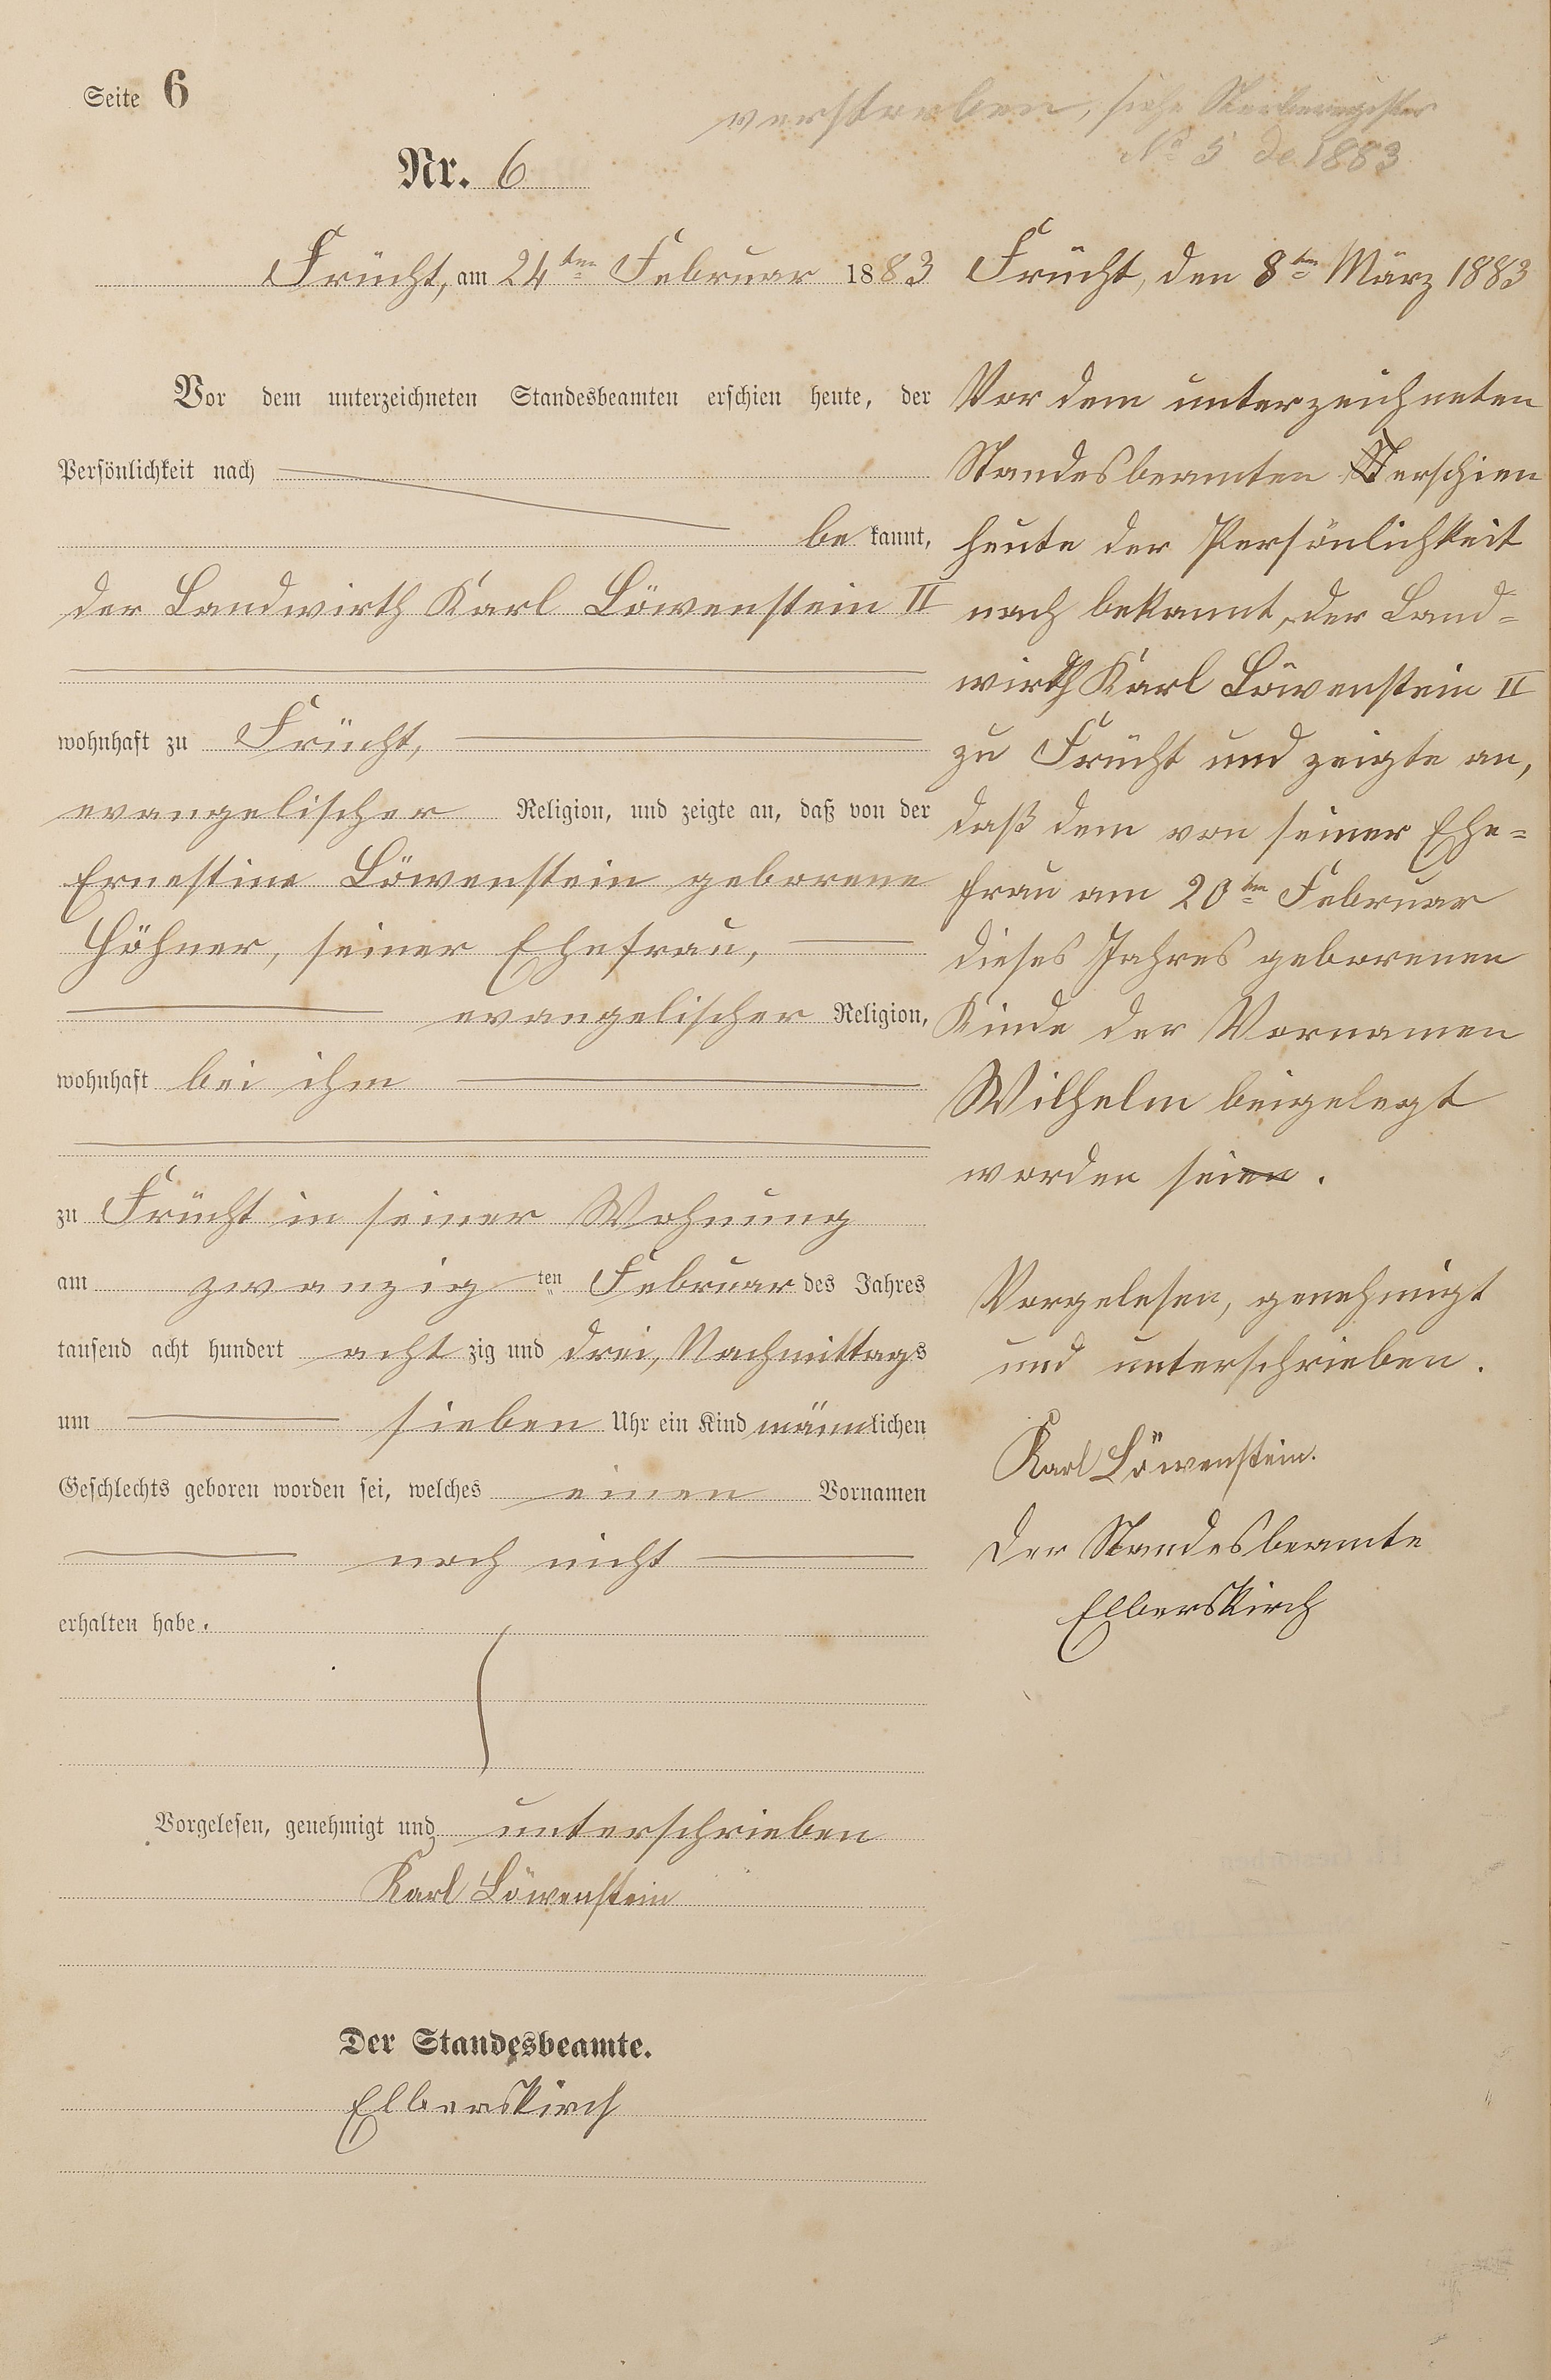 Seite 6
verstorben, siehe Sterberegister
No 5 de 1883
Nr. 6
Frücht, am 24ten Februar 1883
Vor dem unterzeichneten Standesbeamten erschien heute, der
Persönlichkeit nach
bekannt,
der Landwirth Karl Löwenstein II
wohnhaft zu Frücht,
evangelischer Religion, und zeigte an, daß von der
Ernestine Löwenstein geborene
Höhner, seiner Ehefrau,
evangelischer Religion,
wohnhaft bei ihm
zu Frücht in seiner Wohnung
am zwanzigten Februar des Jahres
tausend acht hundert achtzig und drei, Nachmittags
um sieben Uhr ein Kind männlichen
Geschlechts geboren worden sei, welches einen Vornamen
noch nicht
erhalten habe.
Vorgelesen, genehmigt und unterschrieben
Karl Löwenstein
Der Standesbeamte.
Elberskirch
Frücht, den 8ten März 1883
Vor dem unterzeichneten
Standesbeamten erschien
heute der Persönlichkeit
nach bekannt, der Land=
wirth Karl Löwenstein II
zu Frücht und zeigte an,
daß dem von seiner Ehe=
frau am 20ten Februar
dieses Jahres geborenen
Kinde der Vornamen
Wilhelm beigelegt
worden seien.
Vorgelesen, genehmigt
und unterschrieben.
Karl Löwenstein.
Der Standesbeamte
Elberskirch